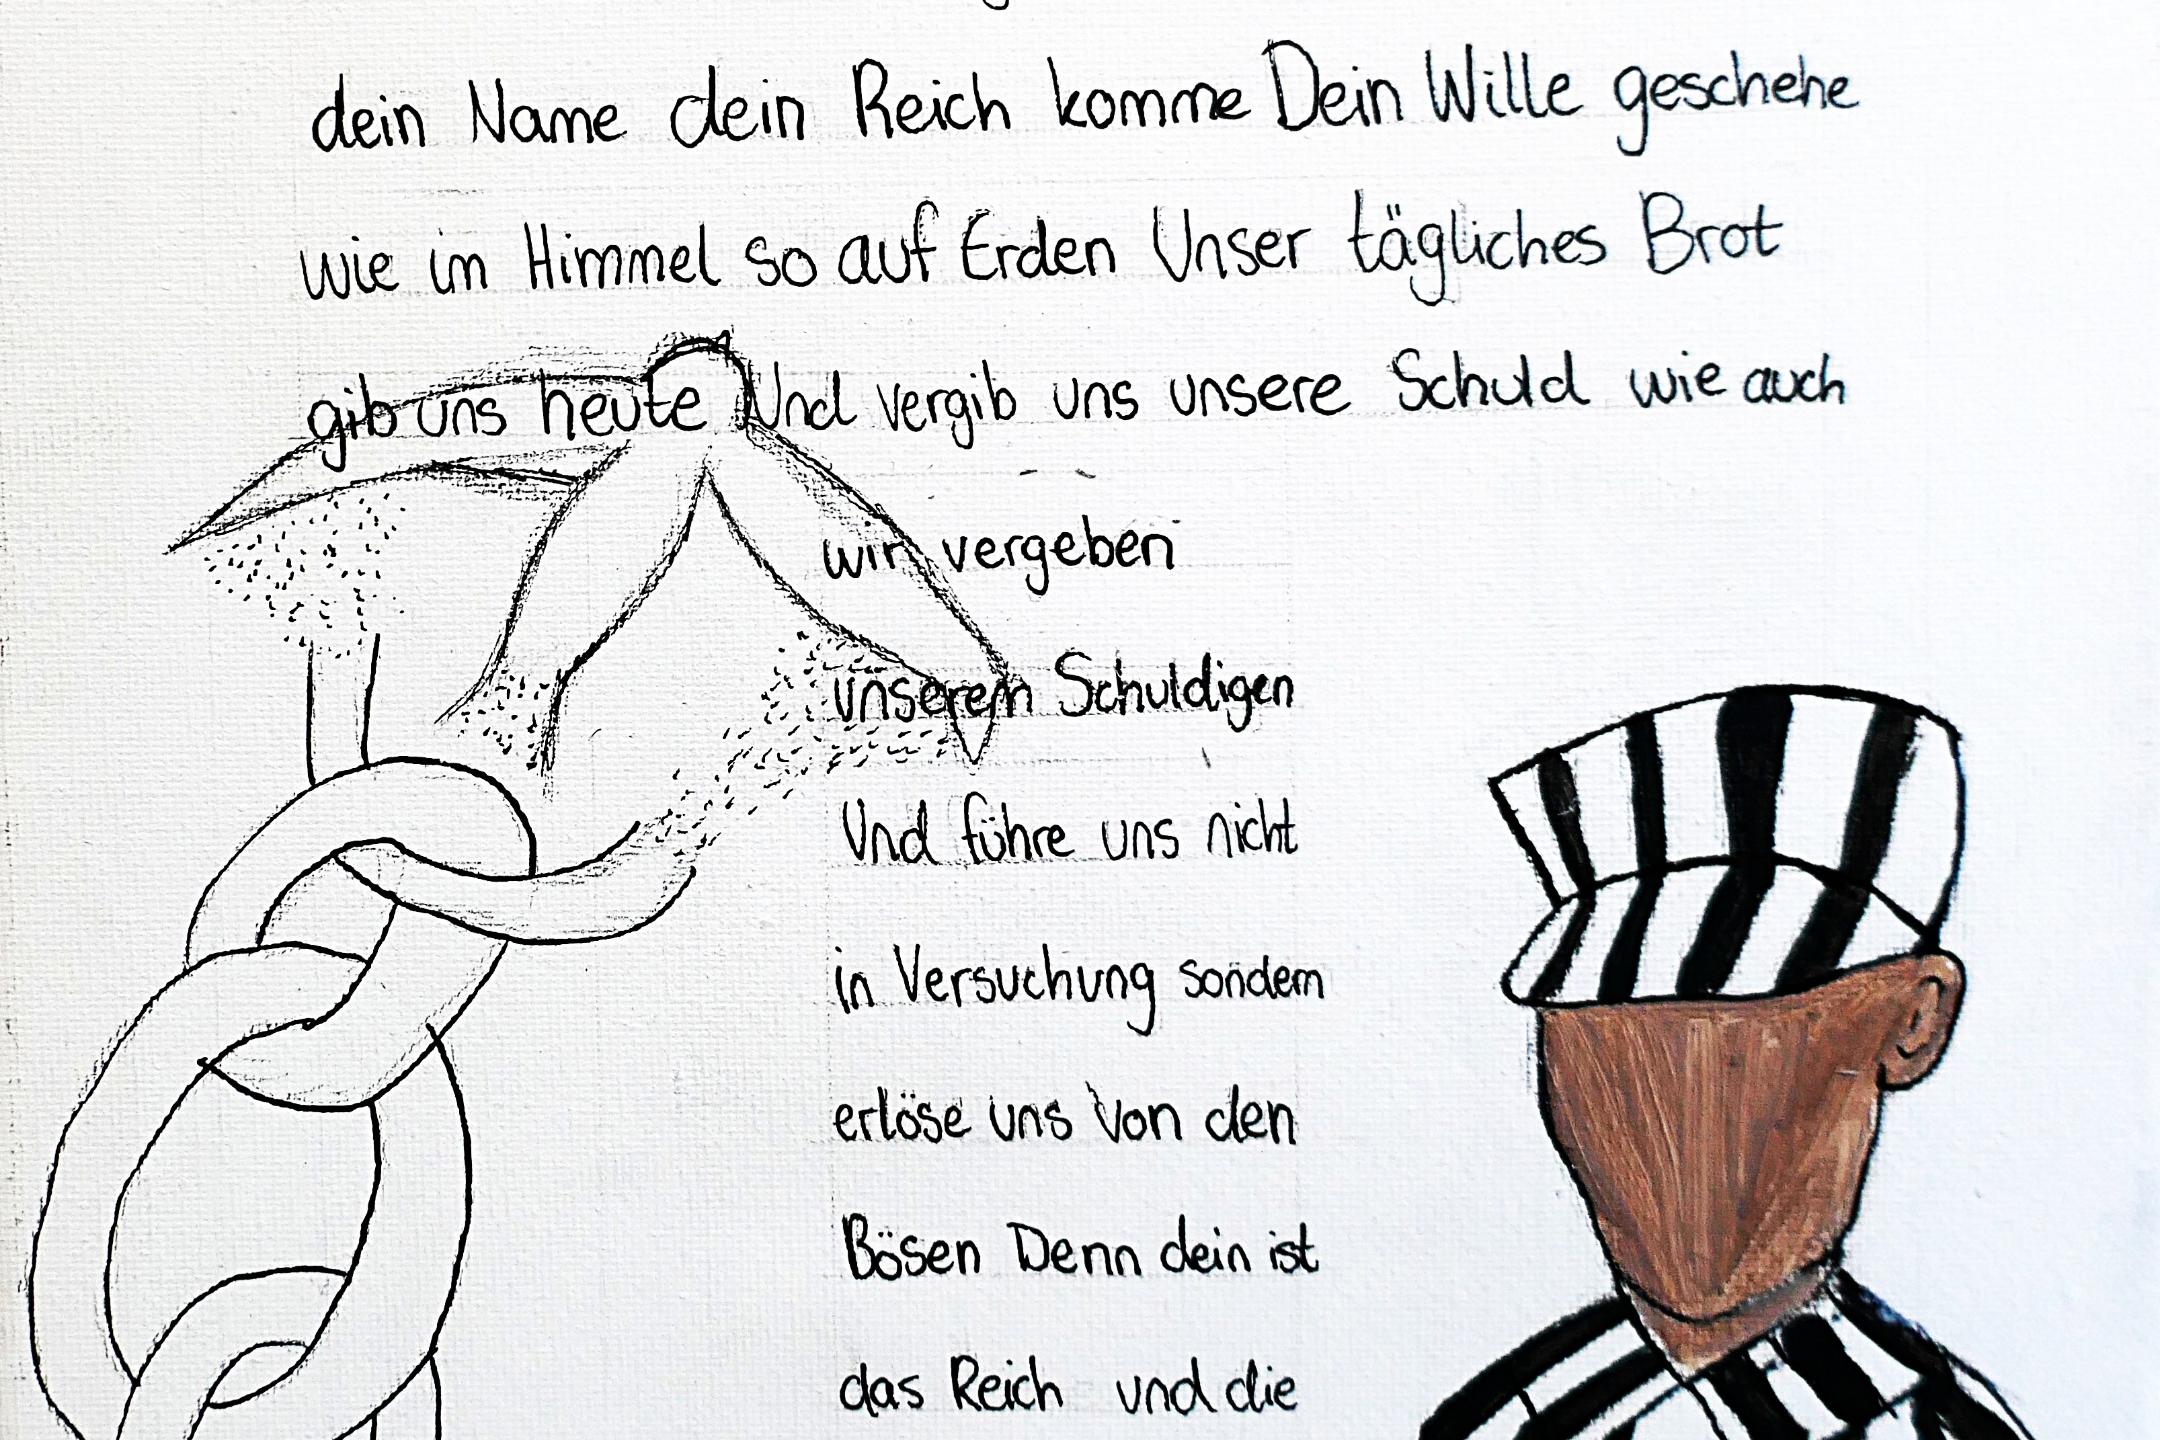 dein Name dein Reich komme Dein Wille geschehe
wie im Himmel so auf Erden Unser tägliches Brot
gib uns heute Und vergib uns unsere Schuld wie auch
wir vergeben
unserem Schuldigen
Und führe uns nicht
in Versuchung sondern
erlöse uns von den
Bösen Denn dein ist
das Reich und die